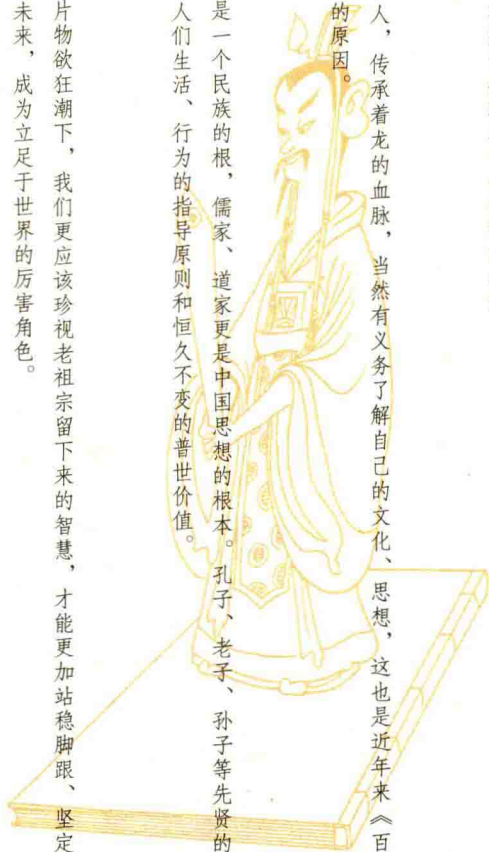 人，传承着龙的血脉，当然有义务了解自己的文化、思想，这也是近年来《百
的原因。
是一个民族的根，儒家、道家更是中国思想的根本。孔子、老子、孙子等先贤的
人们生活、行为的指导原则和恒久不变的普世价值。
片物欲狂潮下，我们更应该珍视老祖宗留下来的智慧，才能更加站稳脚跟、坚定
未来，成为立足于世界的厉害角色。